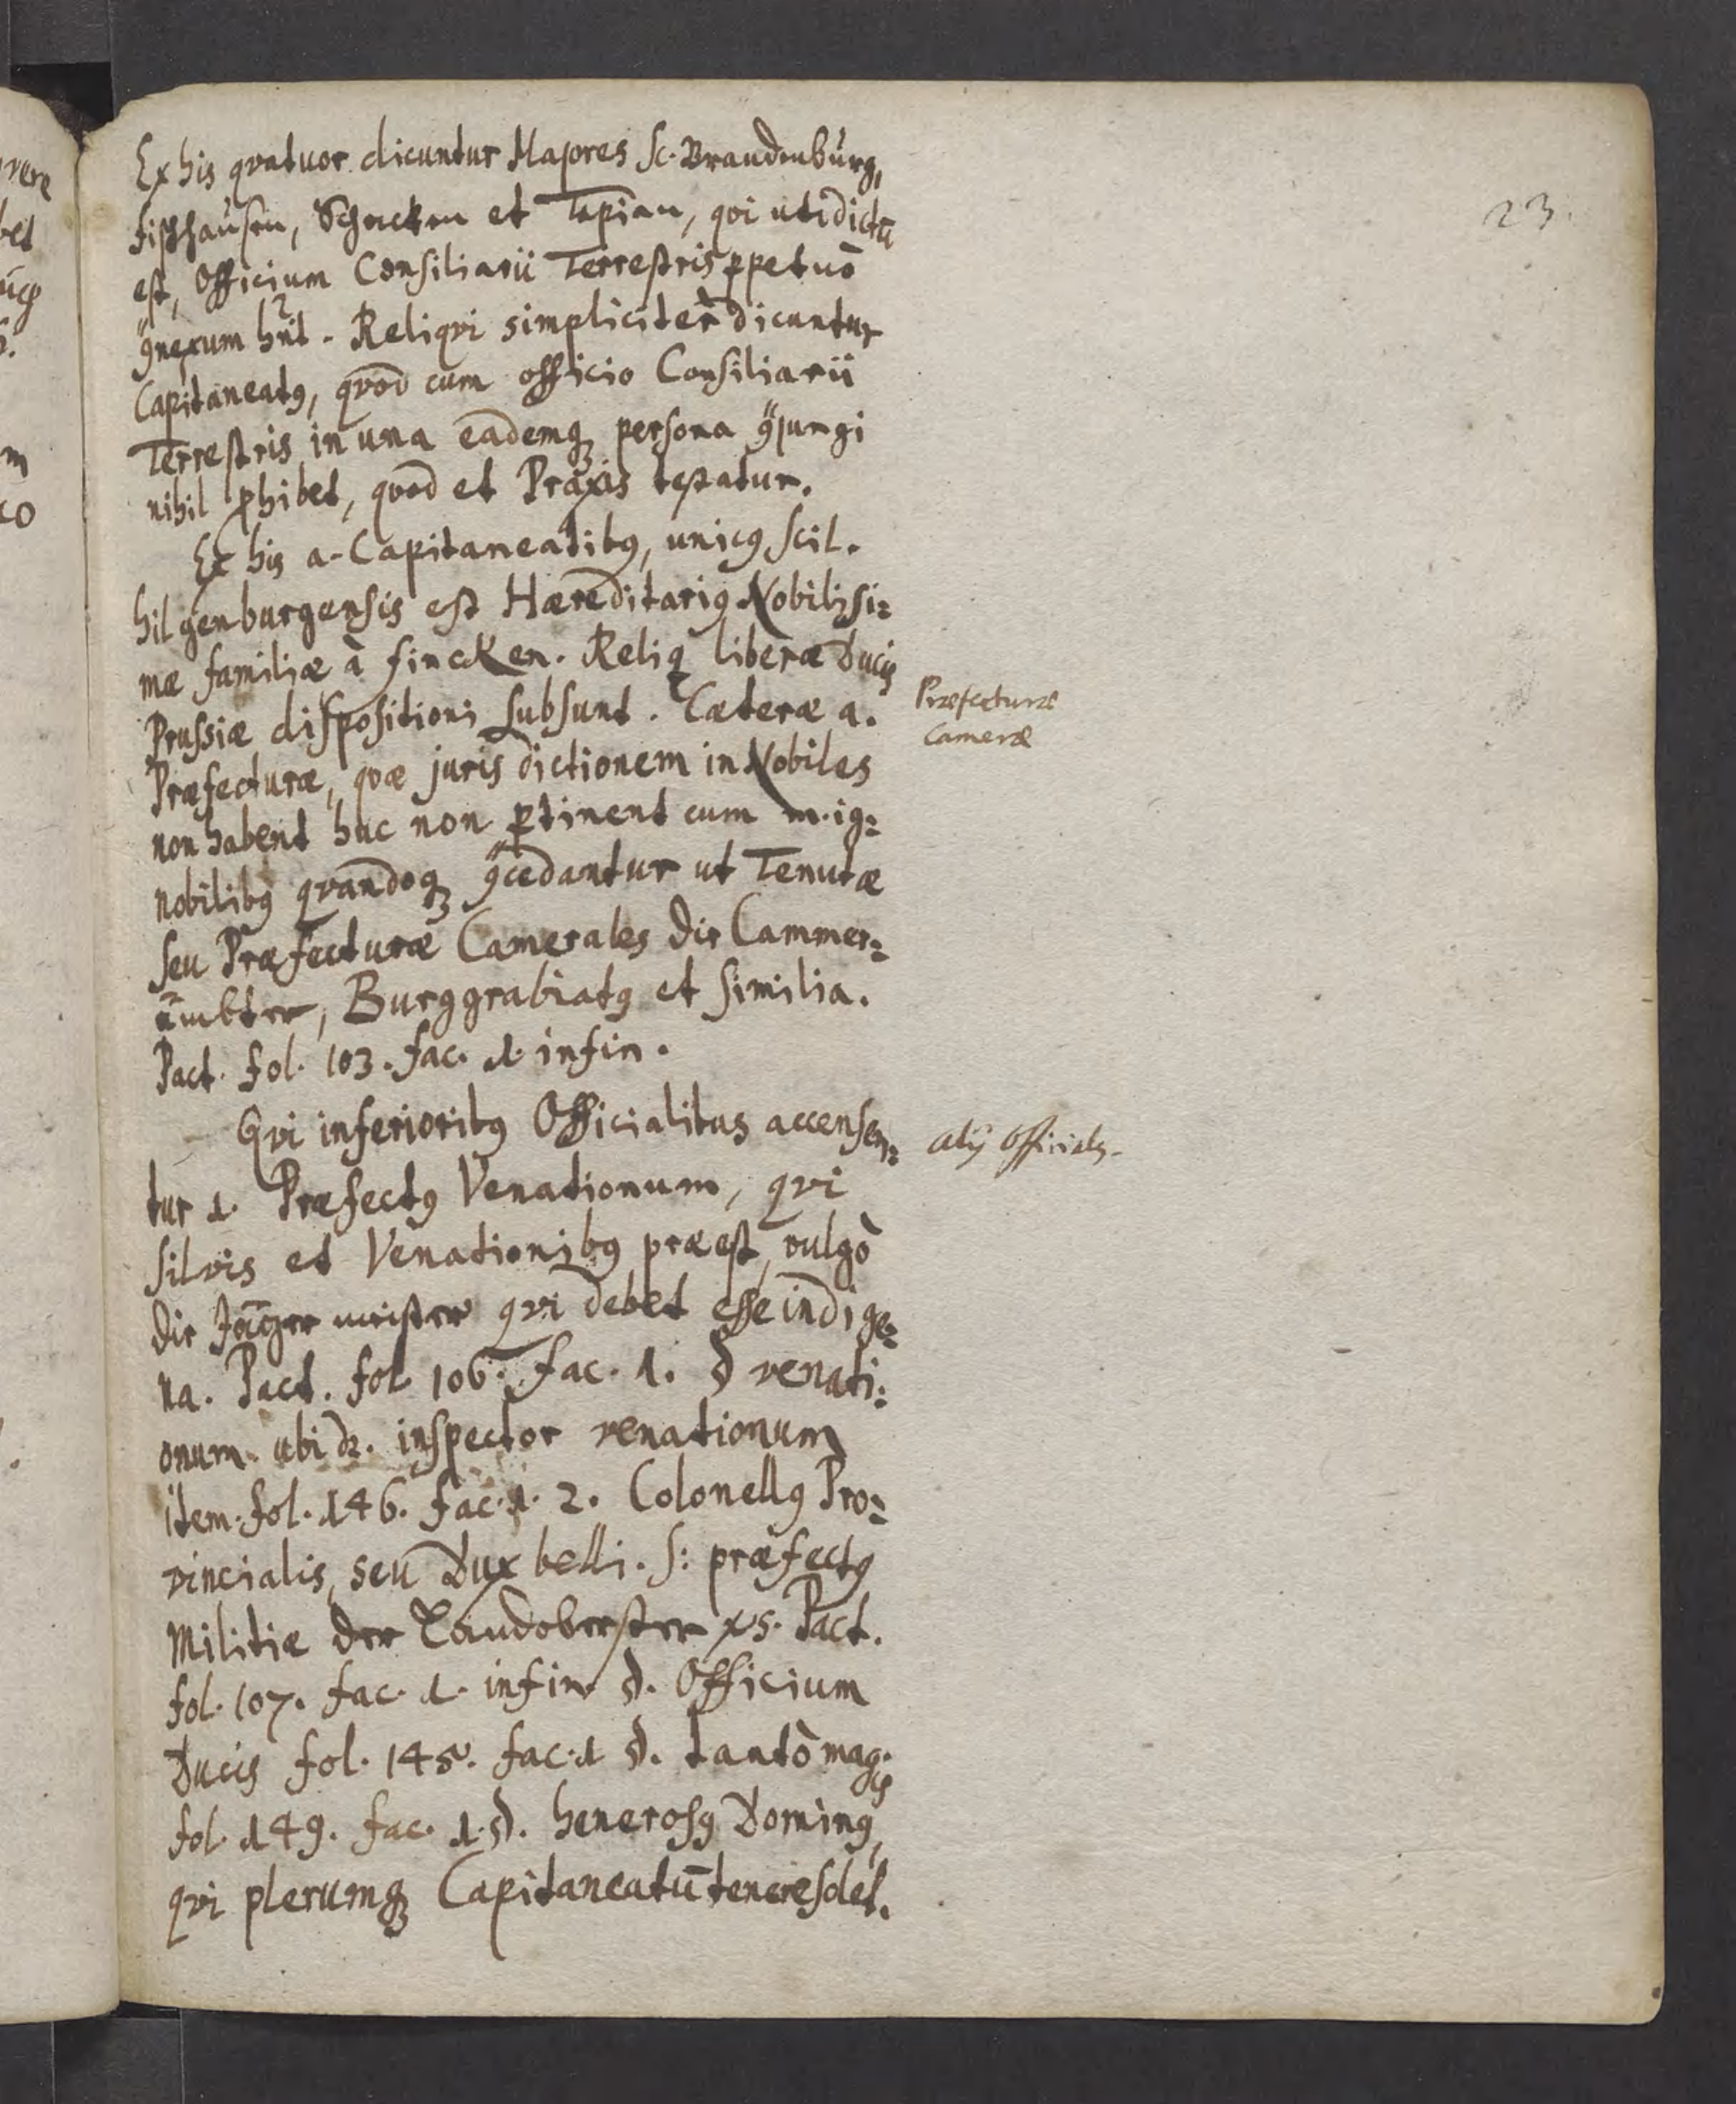 23.
Ex his qvatuor dicuntur Majores sc. Brandenburg,
Fischhausen, Schacken et Tapiau, qvi uti dictū
est, Officium Consiliarii Terrestris ꝑpetuò
ꝯnexum hn̄t. Reliqvi simplicitèr dicuntur
Capitaneatꝰ, qvod cum officio Consiliarii
Terrestris in una eademqꝫ persona ꝯjungi
nihil ꝓhibet, qvod et Praxis testatur.
Ex his a. Capitaneatibꝰ, unicꝰ scil.
Hilgenburgensis est Hæreditariꝰ Nobilissi:
mæ familiæ à Fincken. Reliq liberæ Ducis
Prussiæ dispositioni subsunt. Cæteræ a.
Præfecturæ, qvæ juris dictionem in Nobiles
non habent huc non ꝑtinent cum m. ig:
nobilibꝰ qvandoqꝫ ꝯcedantur ut Tenutæ
seu Præfecturæ Camerales die Cammer:
ämbter, Burggrabiatꝰ et similia.
Pact. fol. 103. fac. 1. in fin.
Qvi inferioribꝰ Officialibus accensen:
tur 1. Præfectꝰ Venationum, qvi
silvis et Venationibꝰ præest, vulgò
die Jäger meister qvi debet esse indige:
na. Pact. fol. 106. fac. 1. § venati:
onum. ubi dr. inspector venationum
item. fol. 146. fac. 1. 2. Colonellꝰ Pro:
vincialis, seu Dux belli. s: præfectꝰ
Militiæ der Landoberster Pact.
fol. 107. fac. 1. in fin §. Officium
Ducis fol. fac. 1 §. tantò magis
fol. 149. fac. 1. §. henerosꝰ Dominꝰ,
qvi plerumqꝫ Capitaneatū tenere solet.
Præfecturæ
Cameræ
alij Officiales.